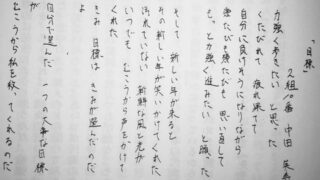 「目標」
2組10番 中田 英寿
力強く歩きたい と思った
くたびれて 疲れ果てて
自分に負けそうになりながら
寝たいも寝たいも 思い直して
もっと力強く進みたい と願った
そして 新しい年が来ると
その新しい年が笑いかけてくれた
汚れていない 新鮮な風と光が
いつでも むこうから声をかけて
くれた
きみ 目標は きみが選んだのだ
よ
自分で選んだ 一つの大事な目標
が
むこうから私を紋 てくれるのだ